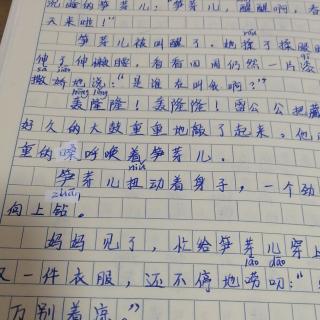 说嗨的笋芽儿："笋芽儿,醒醒啊,春
天来啦！"
笋芽儿被叫醒了,她揉了揉眼
伸了伸懒腰,看看四周仍然一片
sā
撒娇地说："是谁在叫我啊？"
hōng lōng
轰隆隆！轰隆隆！雷公公把藏
好久的大鼓重重地敲了起来,他
重的嗓呼唤着笋芽儿.
niǔ
笋芽儿扭动着身子,一个劲
zuān
向上钻。
妈妈见了,忙给笋芽儿穿上
láo dāo
又一件衣服,还不停地唠叨："
万别着凉。"